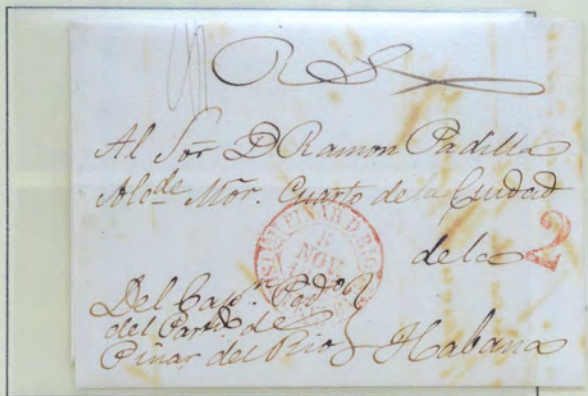 R S
Al Sor. D Ramon Padilla
Alcde Mor. Cuarto de la Ciudad
de la
2
PINAR D RIO
5
NOV.
Del Capn. Pedo
del Partdo de
Pinar del Rio
Habana